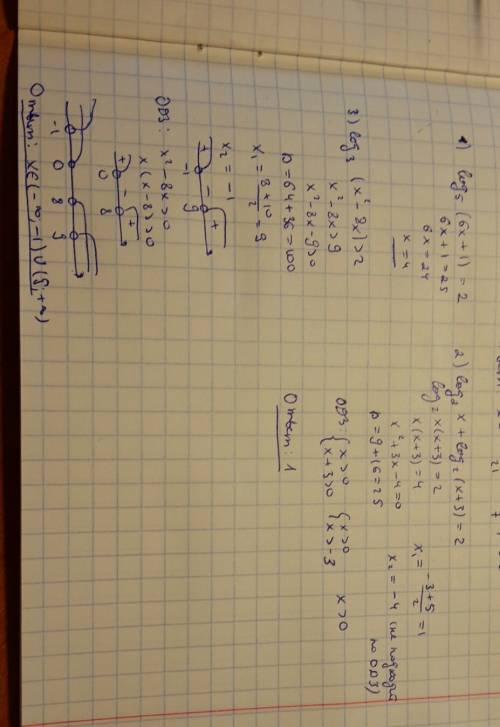 1) log₅ (6x+1) = 2
6x+1 = 25
6x = 24
x = 4
2) log₂ x + log₂ (x+3) = 2
log₂ x(x+3) = 2
x(x+3) = 4
x² + 3x - 4 = 0
D = 9 + 16 = 25
x₁ = (-3+5)/2 = 1
x₂ = -4 (не подходит
по ОДЗ)
ОДЗ: { x>0 { x>0 x>0
{ x+3>0 { x>-3
Ответ: 1
3) log₃ (x² - 8x) > 2
x² - 8x > 9
x² - 8x - 9 > 0
D = 64 + 36 = 100
x₁ = (8+10)/2 = 9
x₂ = -1
+ - +
-1 9
ОДЗ: x² - 8x > 0
x(x-8) > 0
+ - +
0 8
-1 0 8 9
Ответ: x∈(-∞; -1)∪(9; +∞)